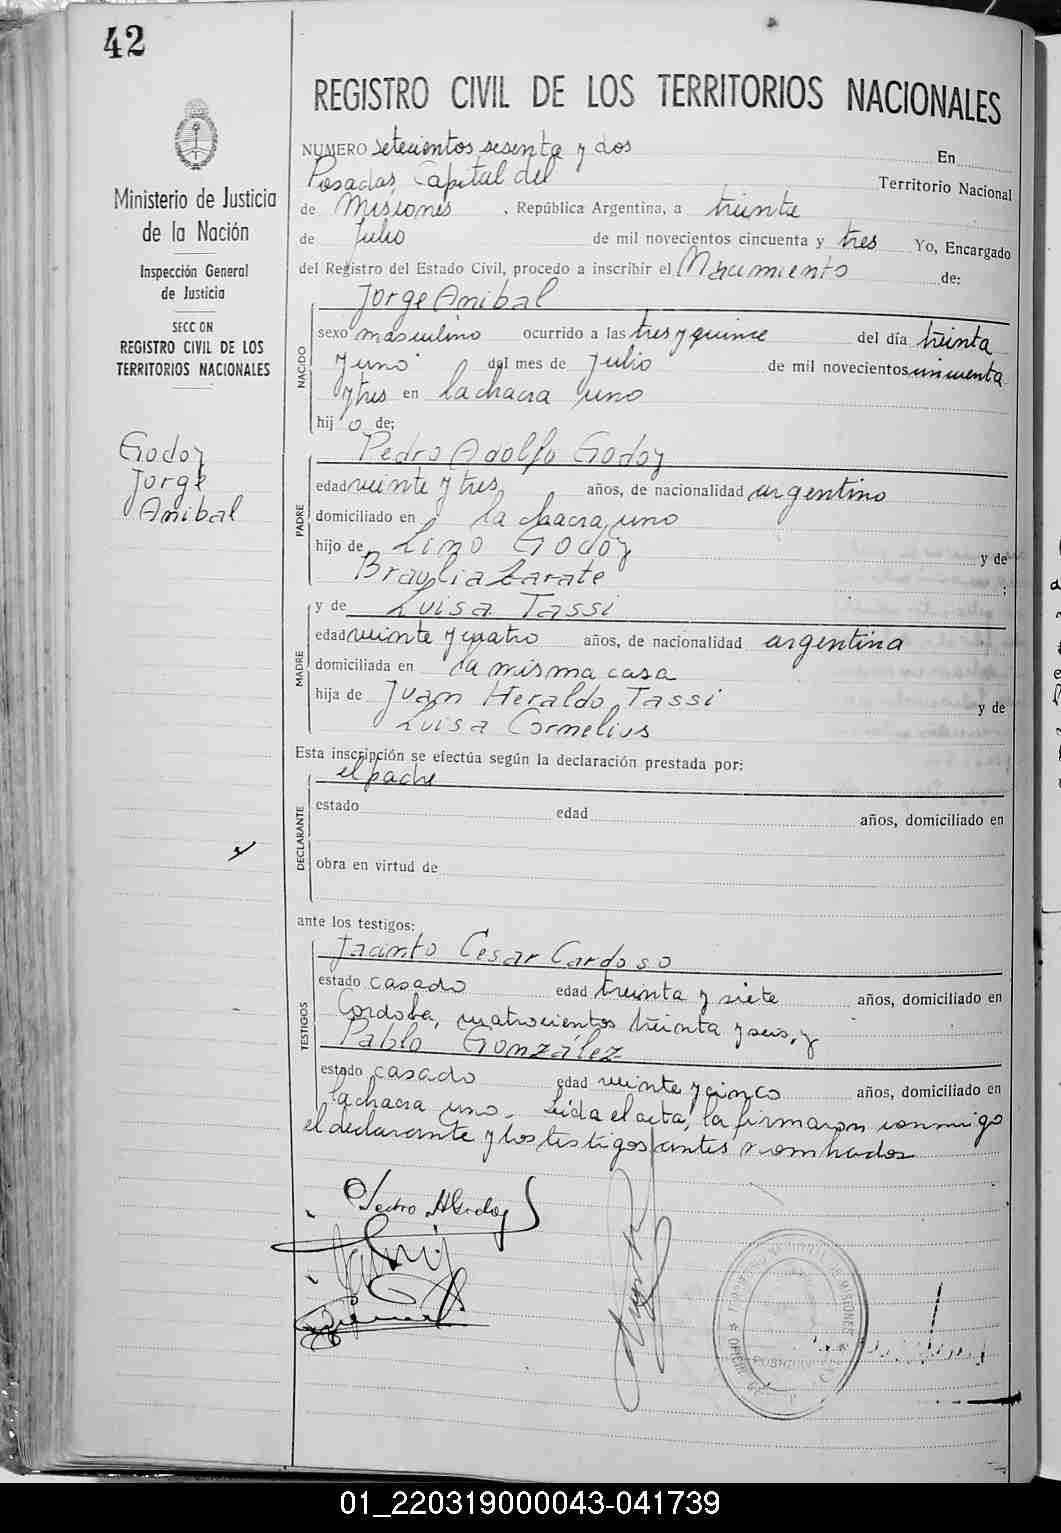 42
REGISTRO CIVIL DE LOS TERRITORIOS NACIONALES
Ministerio de Justicia
de la Nación
Inspección General
de Justicia
SECC ON
REGISTRO CIVIL DE LOS
TERRITORIOS NACIONALES
Godoy
Jorge
Anibal
NUMERO setecientos sesenta y dos En
Posadas, Capital del Territorio Nacional
de Misiones, República Argentina, a treinta
de Julio de mil novecientos cincuenta y tres Yo, Encargado
del Registro del Estado Civil, procedo a inscribir el Nacimiento de:
Jorge Anibal
NACIDO
sexo masculino ocurrido a las tres y quince del día treinta
y uno del mes de Julio de mil novecientos cincuenta
y tres en la chacra uno
hij o de;
Pedro Adolfo Godoy
PADRE
edad veinte y tres años, de nacionalidad argentino
domiciliado en la chacra uno
hijo de Lino Godoy y de
Braulia Zarate;
y de Luisa Tassi
MADRE
edad veinte y cuatro años, de nacionalidad argentina
domiciliada en la misma casa
hija de Juan Heraldo Tassi y de
Luisa Cornelius
Esta inscripción se efectúa según la declaración prestada por:
el padre
DECLARANTE
estado edad años, domiciliado en
obra en virtud de
ante los testigos:
Jacinto Cesar Cardoso
TESTIGOS
estado casado edad treinta y siete años, domiciliado en
Cordoba, cuatrocientos treinta y seis, y
Pablo González
estado casado edad veinte y cinco años, domiciliado en
la chacra uno. Leida el acta, la firmaron conmigo
el declarante y los testigos antes nombrados
Pedro A Godoy
TERRITORIO NACIONAL DE MISIONES
01_220319000043-041739